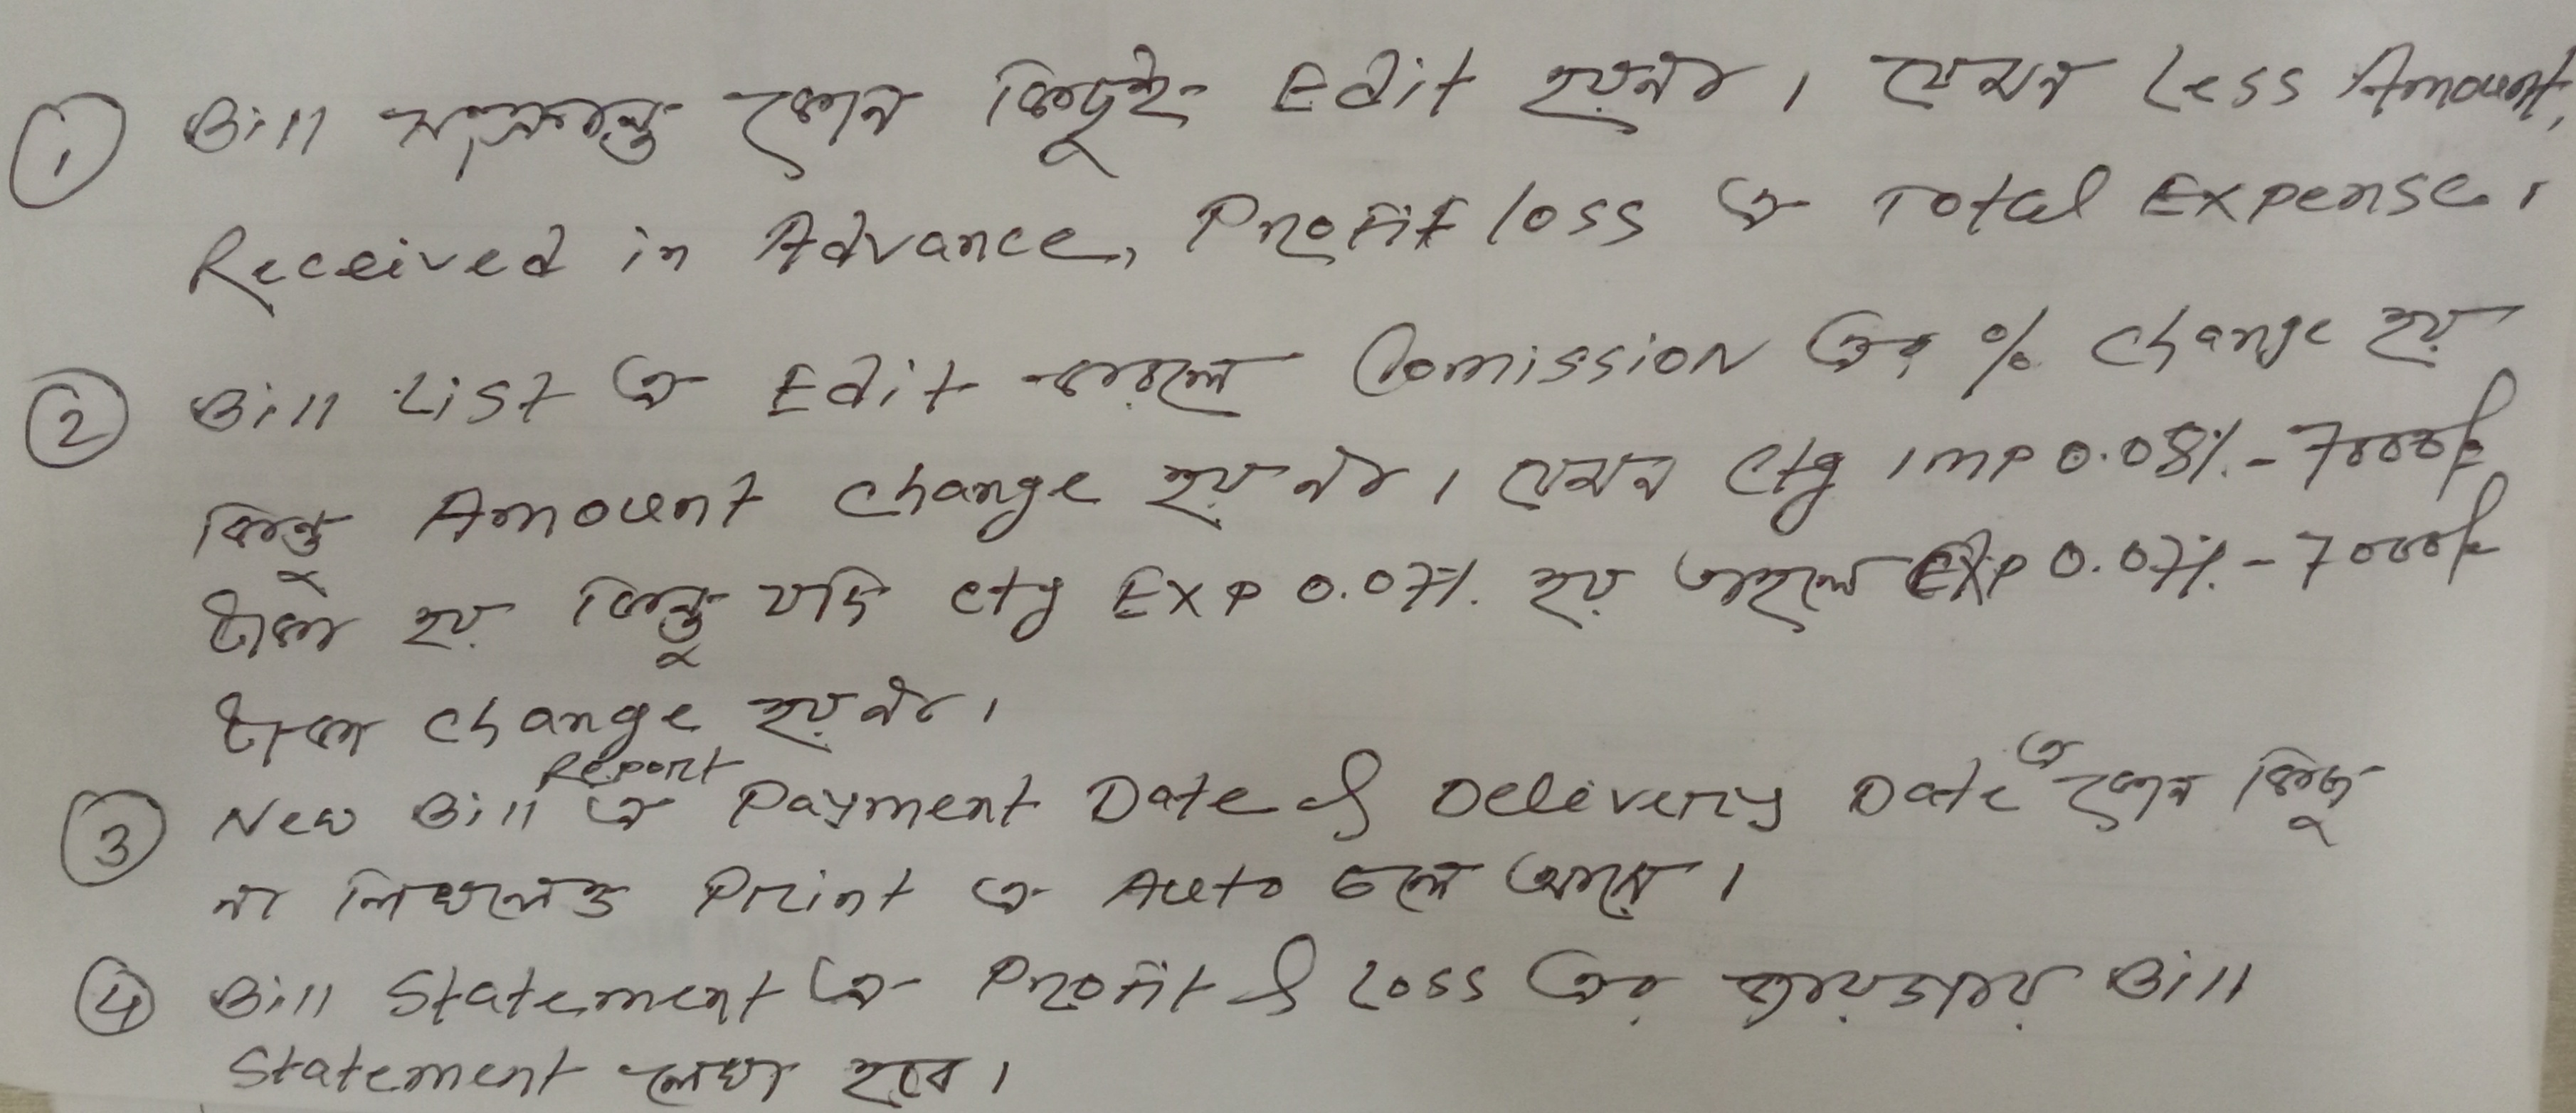 ① Bill সংক্রান্ত কোন কিছুই Edit হয়না। যেমন Less Amount,
Received in Advance, Profit loss এ Total Expense।
② Bill List এ Edit করলে Comission এর % change হয়
কিন্তু Amount change হয় না। যেমন ctg imp 0.08%-7000/=
টাকা হয় কিন্তু যদি ctg Exp 0.07% হয় তাহলে Exp 0.07%-7000/=
টাকা change হয়না।
Report এ
③ New Bill এ Payment Date & Delivery Date কোন কিছু
না লিখলেও Print এ Auto চলে আসে।
④ Bill Statement এ Profit & Loss এর জায়গায় Bill
Statement লেখা হবে।